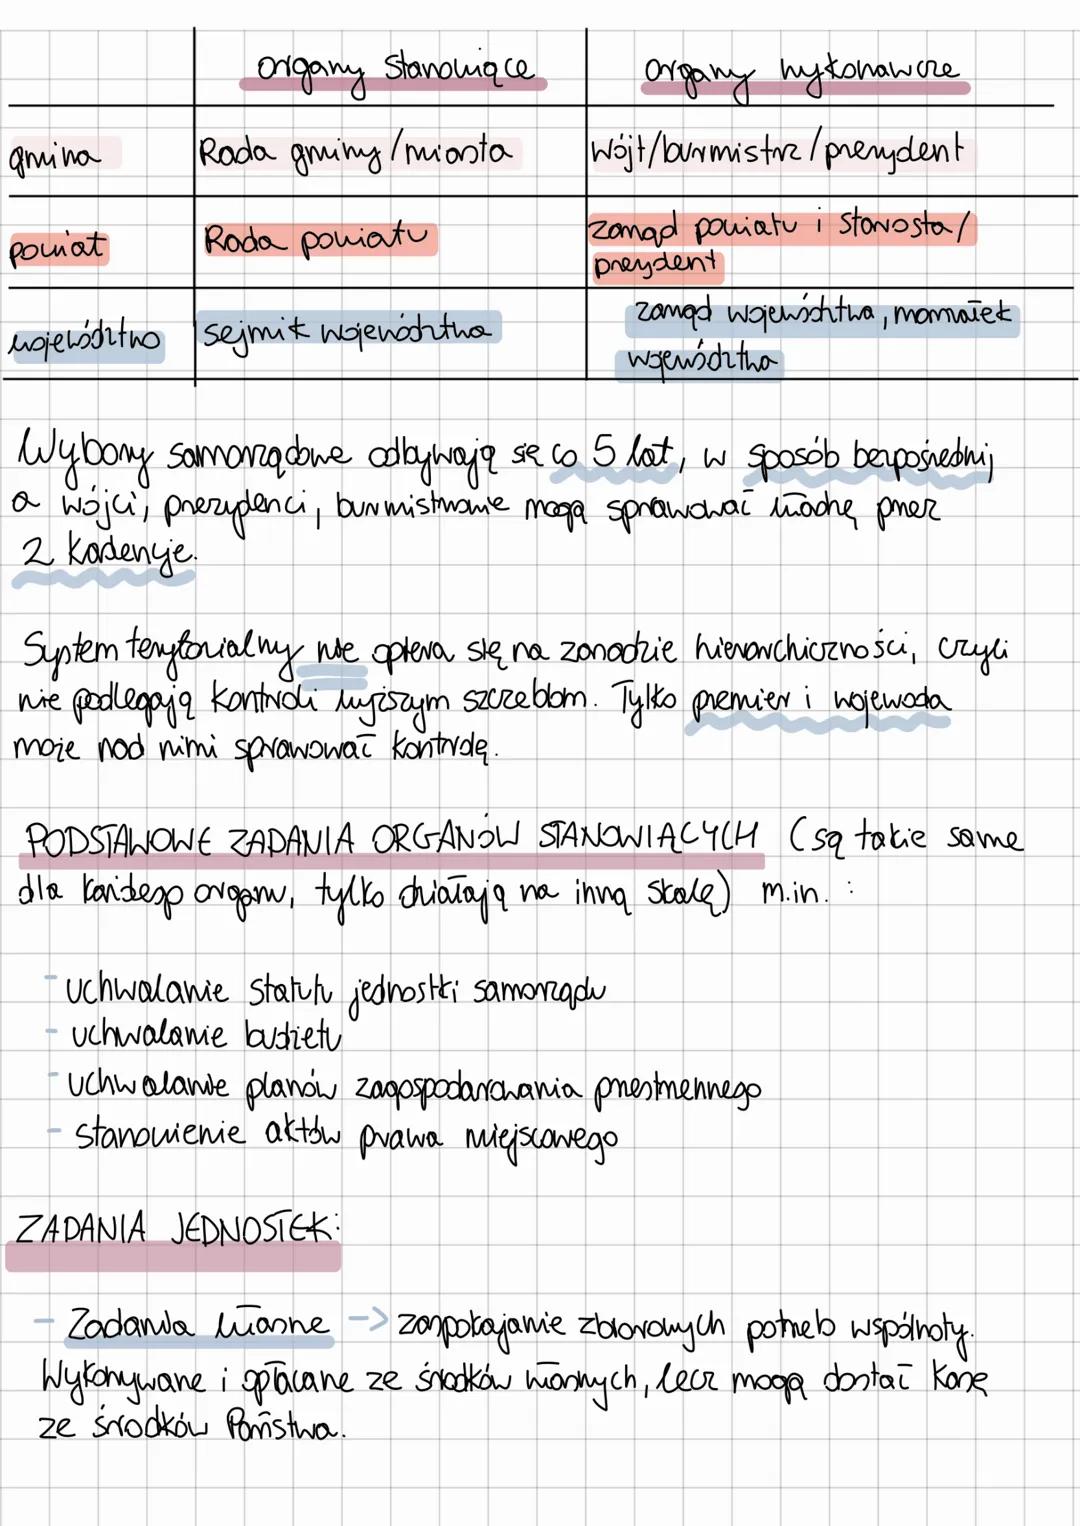 organy stanowiące organy wykonawcze
gmina Rada gminy/miasta Wójt/burmistrz/prezydent
powiat Rada powiatu zarząd powiatu i starosta/
prezydent
województwo sejmik województwa zarząd województwa, marszałek
województwa
Wybory samorządowe odbywają się co 5 lat, w sposób bezpośredni,
a wójci, prezydenci, burmistrzowie mogą sprawować władzę przez
2 kadencje.
System terytorialny nie opiera się na zasadzie hierarchiczności, czyli
nie podlegają kontroli wyższym szczeblom. Tylko premier i wojewoda
może nad nimi sprawować kontrolę.
PODSTAWOWE ZADANIA ORGANÓW STANOWIĄCYCH (są takie same
dla każdego organu, tylko działają na inną skalę) m.in. :
- uchwalanie statutu jednostki samorządu
- uchwalanie budżetu
- uchwalanie planów zagospodarowania przestrzennego
- stanowienie aktów prawa miejscowego
ZADANIA JEDNOSTEK:
- Zadania własne -> zaspokajanie zbiorowych potrzeb wspólnoty.
Wykonywane i opłacane ze środków własnych, lecz mogą dostać kasę
ze środków Państwa.